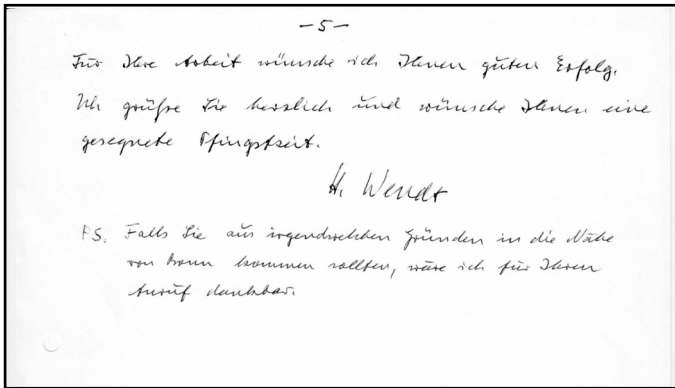 -5-
Für Ihre Arbeit wünsche ich Ihnen guten Erfolg.
Ich grüße Sie herzlich und wünsche Ihnen eine
gesegnete Pfingstzeit.
H. Wendt
PS. Falls Sie aus irgendwelchen Gründen in die Nähe
von Bonn kommen sollten, wäre ich für Ihren
Anruf dankbar.